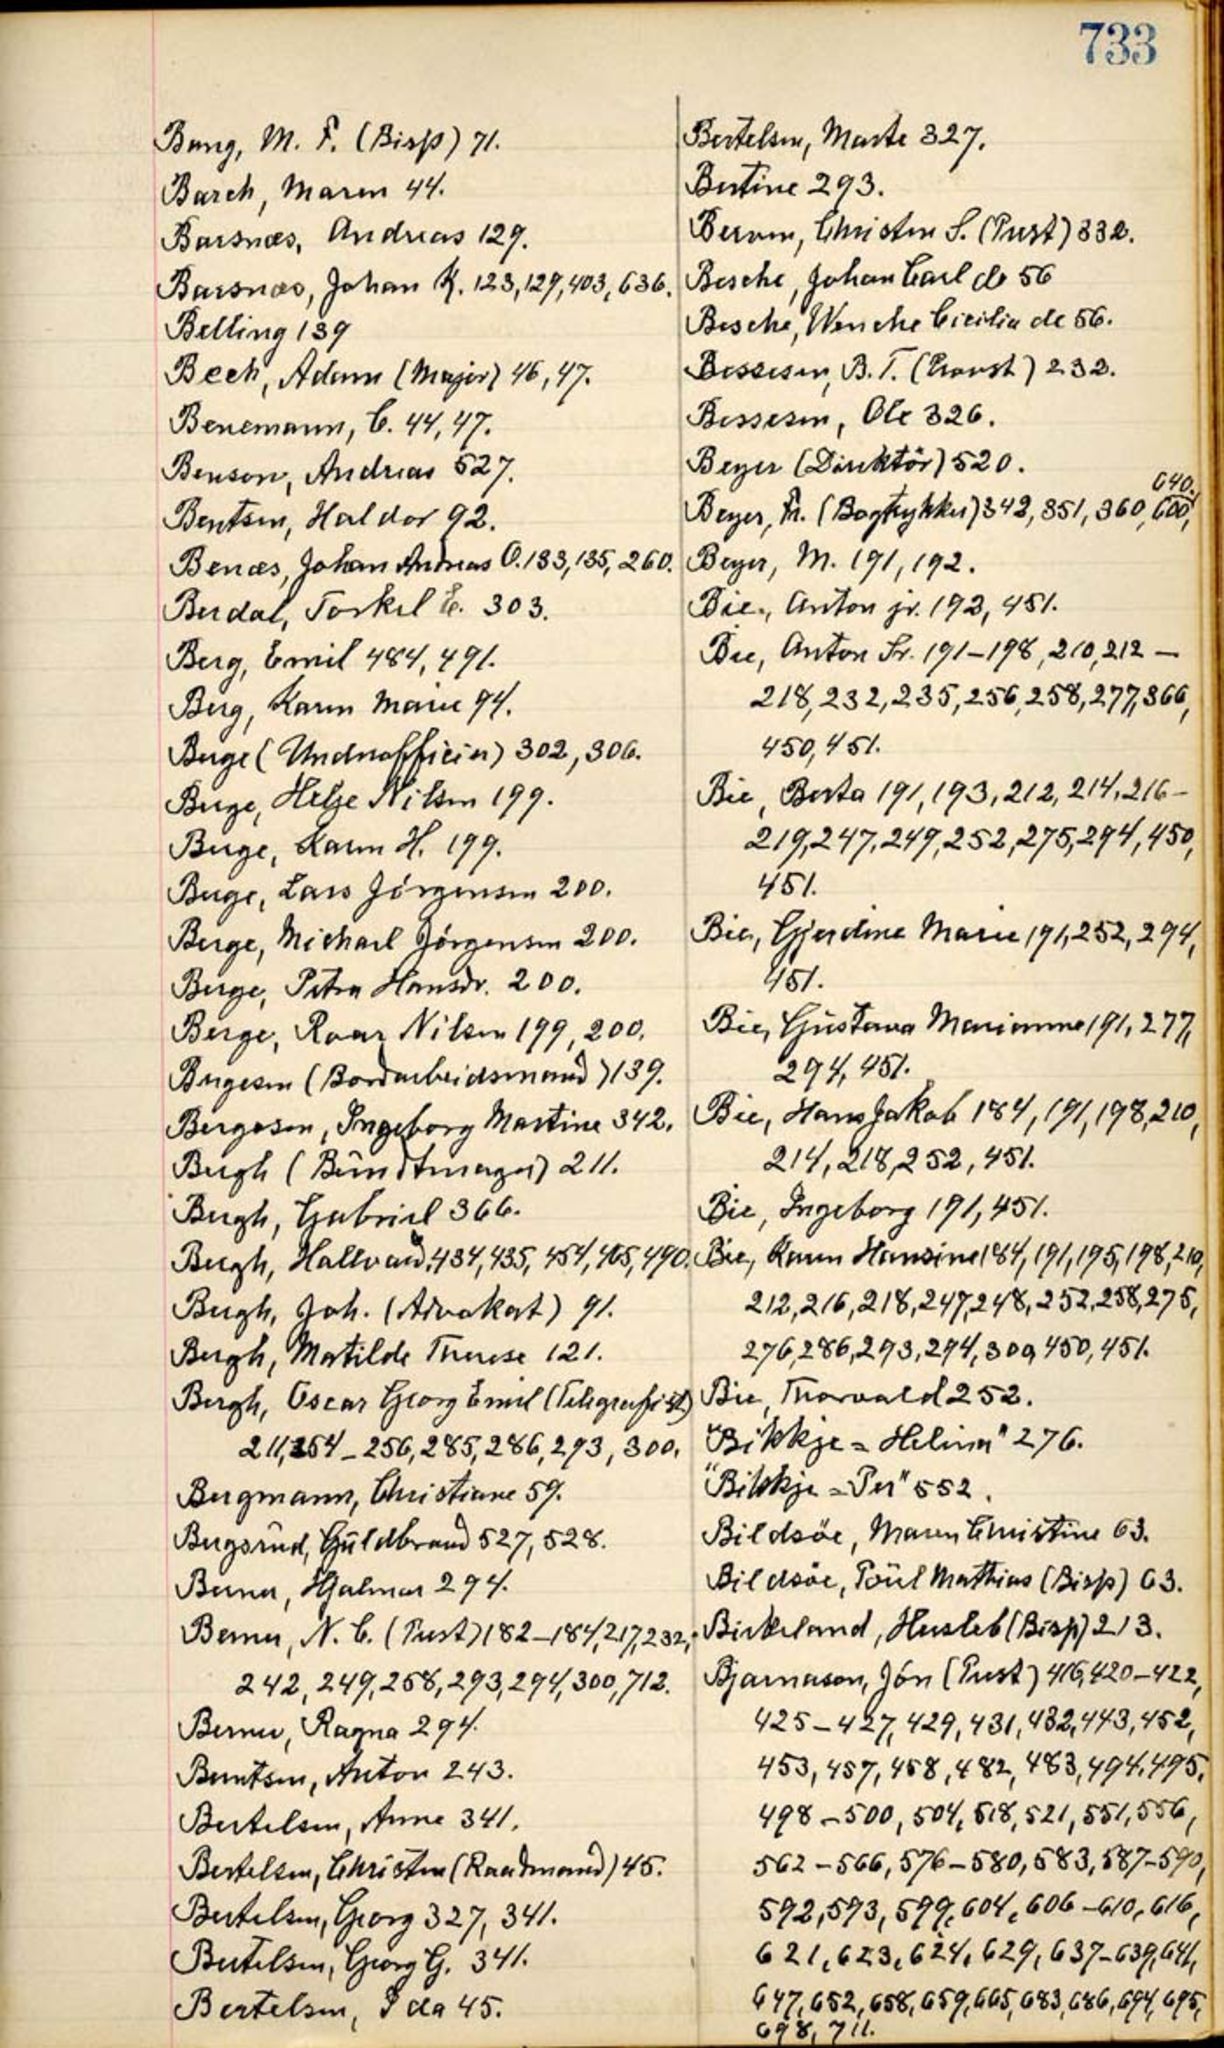 733
Bang, M. F. (Bisp) 71.
Barch, Maren 44.
Barsnæs, Andreas 129.
Barsnæs, Johan K. 123, 129, 403, 636.
Belling 139
Bech, Adam (Major) 46, 47.
Benemann, C. 44, 47.
Benson, Andreas 527.
Bentsen, Haldor 92.
Benæs, Johan Andreas O. 133, 135, 260.
Berdal, Torkel E. 303.
Berg, Emil 484, 491.
Berg, Karen Marie 94.
Berge (Underofficier) 302, 306.
Berge, Helge Nilsen 199.
Berge, Karen H. 199.
Berge, Lars Jörgensen 200.
Berge, Michael Jörgensen 200.
Berge, Petra Hansdr. 200.
Berge, Roar Nilsen 199, 200.
Bergesen (Bordarbeidsmand) 139.
Bergeson, Ingeborg Martine 342.
Bergh (Bündtmager) 211.
Bergh, Gabriel 366.
Bergh, Hallvard, 434, 435, 454, 465, 490.
Bergh, Joh. (Advokat) 91.
Bergh, Matilde Therese 121.
Bergh, Oscar Georg Emil (Telegrafist)
211, 254-256, 285, 286, 293, 300.
Bergmann, Christiane 59.
Bergsrüd, Güldbrand 527, 528.
Berner, Hjalmar 294.
Berner, N. C. (Prest) 182-184, 217, 232,
242, 249, 258, 293, 294, 300, 712.
Berner, Ragna 294.
Berntsen, Anton 243.
Bertelsen, Anne 341.
Bertelsen, Christen (Raadmand) 45.
Bertelsen, Georg 327, 341.
Bertelsen, Georg G. 341.
Bertelsen, Ida 45.
Bertelsen, Marte 327.
Bertine 293.
Berven, Christen S. (Prest) 332.
Besche, Johan Carl de 56
Besche, Wenche Cicilia de 56.
Bessesen, B. T. (Provst) 232.
Bessesen, Ole 326.
Beyer (Direktör) 520.
Beyer, Fr. (Bogtrykker) 342, 351, 360, 600, 640.
Beyer, M. 191, 192.
Bie, Anton jr. 192, 451.
Bie, Anton Sr. 191-198, 210, 212-
218, 232, 235, 256, 258, 277, 366,
450, 451.
Bie, Berta 191, 193, 212, 214, 216-
219, 247, 249, 252, 275, 294, 450,
451.
Bie, Gjerdine Marie 191, 252, 294,
451.
Bie, Güstava Marianne 191, 277,
294, 451.
Bie, Hans Jakob 184, 191, 198, 210,
214, 218, 252, 451.
Bie, Ingeborg 191, 451.
Bie, Karen Hansine 184, 191, 195, 198, 210,
212, 216, 218, 247, 248, 252, 258, 275,
276, 286, 293, 294, 300, 450, 451.
Bie, Thorvald 252.
"Bikkje = Helina" 276.
"Bikkje = Per" 552.
Bildsöe, Maren Christine 63.
Bildsöe, Poül Mathias (Bisp) 63.
Birkeland, Hersleb (Bisp) 213.
Bjarnason, Jón (Prest) 416, 420-422,
425-427, 429, 431, 432, 443, 452,
453, 457, 458, 482, 483, 494, 495,
498-500, 504, 518, 521, 551, 556,
562-566, 576-580, 583, 587-590,
592, 593, 599, 604, 606-610, 616,
621, 623, 624, 629, 637-639, 641,
647, 652, 658, 659, 665, 683, 686, 694, 695,
698, 711.